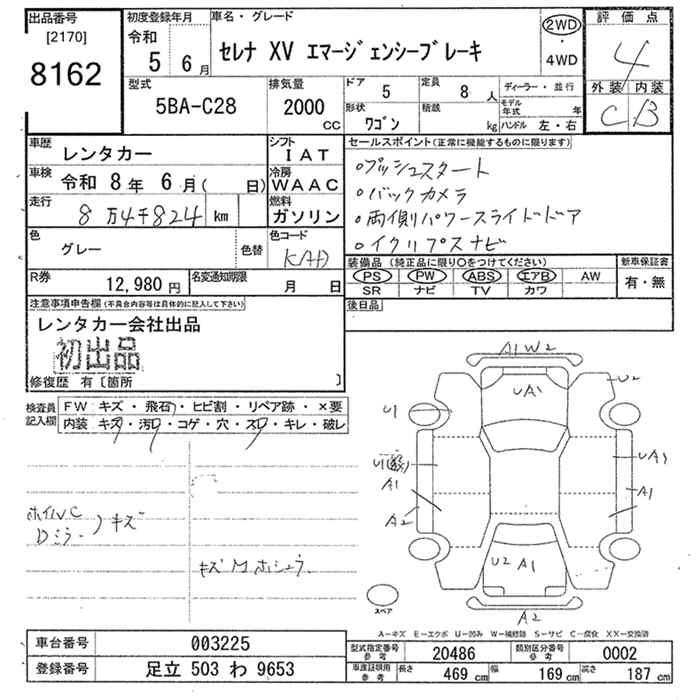 出品番号
[2170]
8162
初度登録年月
令和
5 6月
車名・グレード
セレナ XV エマージェンシーブレーキ
2WD
・
4WD
評価点
4
外装 内装
C B
型式
5BA-C28
排気量
2000
CC
ドア 5
定員 8 人
形状 ワゴン
積載 kg
ディーラー・並行
モデル年式 年
ハンドル 左・右
車歴
レンタカー
シフト
IAT
車検
令和 8年 6月( 日)
冷房
WAAC
走行
8万4千824 km
燃料
ガソリン
色
グレー
色替
色コード
KAD
R券
12,980 円
名変通知期限
月 日
セールスポイント(正常に機能するものに限ります)
○プッシュスタート
○バックカメラ
○両側パワースライドドア
○イクリプスナビ
装備品 (純正品に限り○をつけてください)
PS PW ABS エアB AW
SR ナビ TV カワ
新車保証書
有・無
後日品
注意事項申告欄(不具合内容等は具体的に記入して下さい)
レンタカー会社出品
初出品
修復歴 有〔箇所 〕
検査員記入欄
FW: キズ・飛石・ヒビ割・リペア跡・×要
内装: キズ・汚レ・コゲ・穴・スレ・キレ・破レ
ホイルC
Dミラー
)キズ
キズ
A1W2
UA1
U2
U1
UA1
A1
A1
A2
U2 A1
A2
スペア
A－キズ E－エクボ U－凹み W－補修跡 S－サビ C－腐食 XX－交換済
車台番号
003225
登録番号
足立 503 わ 9653
型式指定番号
参考
20486
類別区分番号
参考
0002
車庫証明用
参考
長さ 469 cm
幅 169 cm
高さ 187 cm